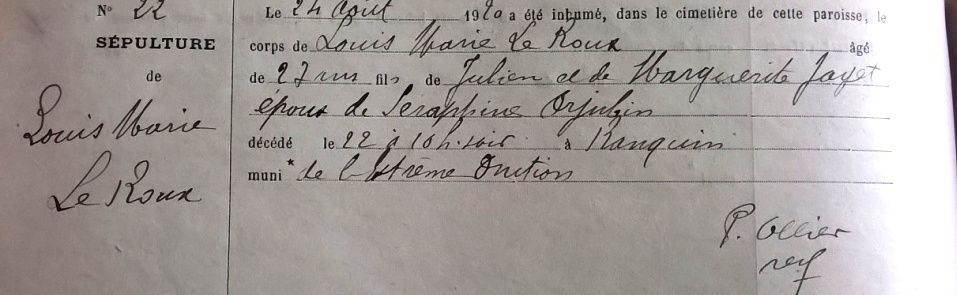 N° 22
SÉPULTURE
de
Louis Marie
Le Roux
Le 24 Août 1920 a été inhumé, dans le cimetière de cette paroisse, le
corps de Louis Marie Le Roux âgé
de 27 ans fils de Julien et de Marguerite Jayet
époux de Seraphine Orjubin
décédé le 22 à 10h. soir à Ranquin
muni * de l'Extrême Onction
P. Ollier